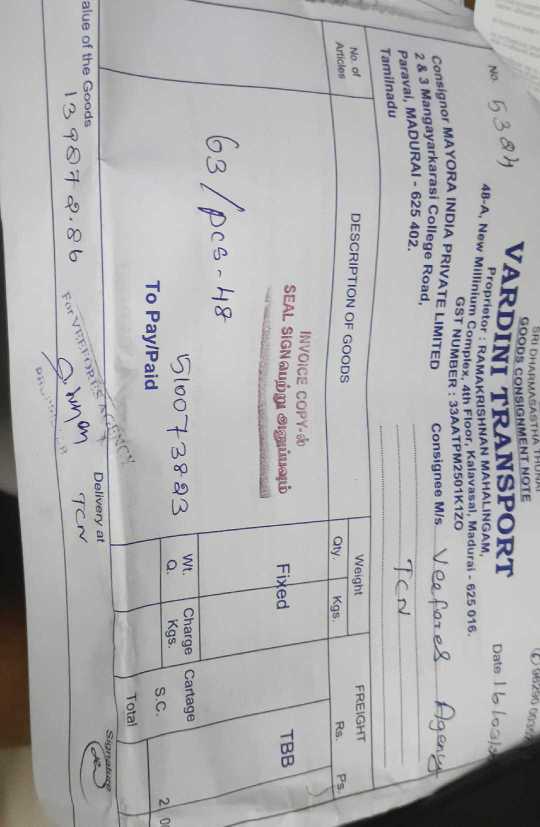 SRI DHARMASASTHA THUNAI
GOODS CONSIGNMENT NOTE
VARDINI TRANSPORT
Proprietor : RAMAKRISHNAN MAHALINGAM,
48-A, New Millinium Complex, 4th Floor, Kalavasal, Madurai - 625 016.
GST NUMBER : 33AATPM2501K1ZO
No. 5384
Date
Consignor MAYORA INDIA PRIVATE LIMITED
2 & 3 Mangayarkarasi College Road,
Paravai, MADURAI - 625 402.
Tamilnadu
Consignee M/s. Veefores Agency
TCN
No. of Articles
DESCRIPTION OF GOODS
Weight
Qty. Kgs.
FREIGHT
Rs. Ps.
INVOICE COPY-ல்
SEAL SIGN பெற்று அனுப்பவும்
Fixed
TBB
63/pcs-48
510073893
To Pay/Paid
Wt. Q.
Charge Kgs.
Cartage
S.C.
Total
alue of the Goods 139872.86
Delivery at TCN
For VEEFORES AGENCY
Signature